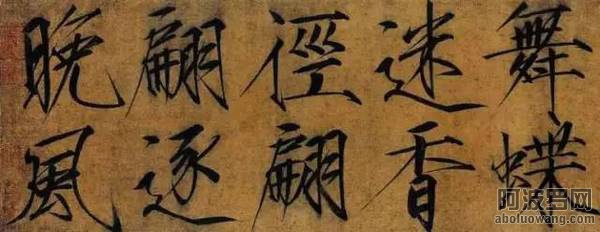 舞蝶
迷香
徑翩
翩逐
晚風
阿波罗网
aboluowang.com